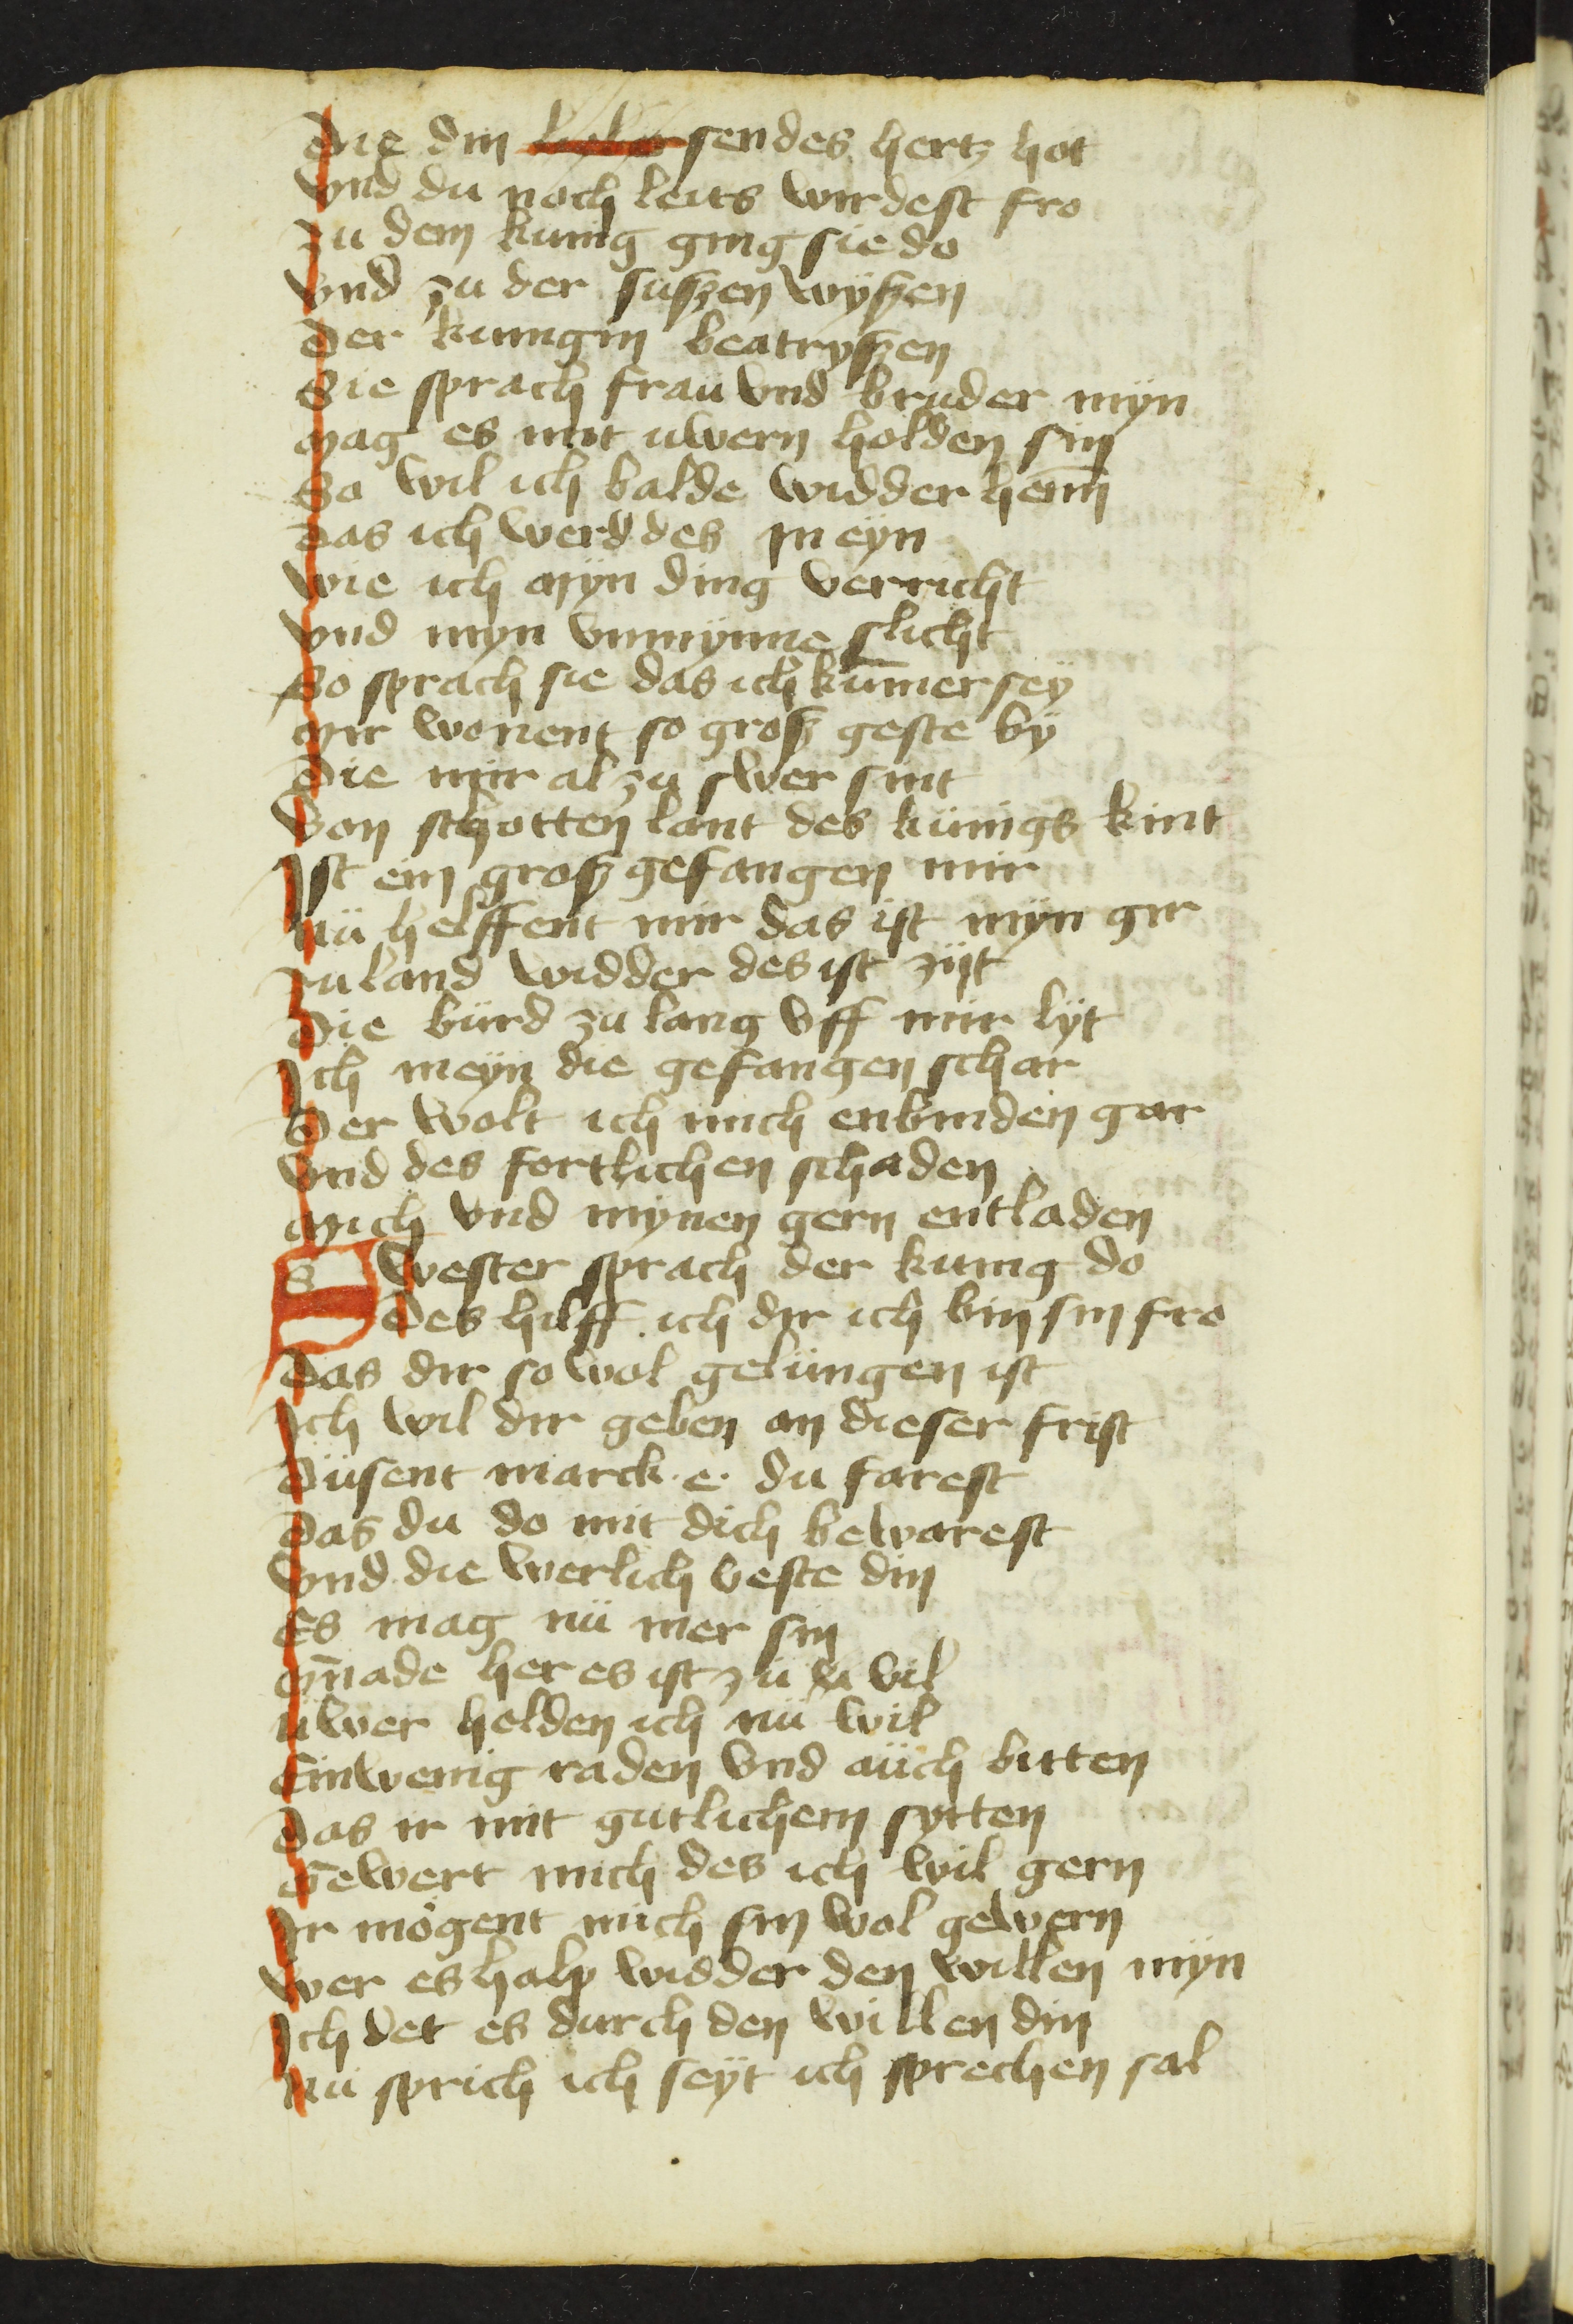 Die din sendes hertz hot
Vnd du noch leits wirdest fro
Zu dem kunig ging sie do
Vnd zu der suszen wyszen
Der kunigin beatryszen
Sie sprach frau vnd bruder myn
Mag es mit uwern holden sin
So wil ich balde widder hein
Das ich werd des in eyn
Wie ich myn ding verricht
Vnd myn vnmynne slicht
So sprach sie das ich kūmer sey
Mir wonent so grosz geste by
Die mir al zu swer sint
Von schotten lant des künigs kint
Ist ein grosz gefangen mir
Nü helffent mir das ist myn gir
Zu land widder des ist zijt
Die bürd zu lang vff mir lyt
Ich meyn die gefangen schar
Der wolt ich mich enbinden gar
Vnd des fortlichen schaden
Mich vnd mynen gern entladen
Swester sprach der kunig do
Des hilff ich dir ich bin sin fro
Das dir so wol gelüngen ist
Ich wil dir geben an dieser frist
Düsent marck .e. du farest
Das du do mit dich bewarest
Vnd die werlich veste din
Es mag nü mer sin
Gnade her es ist zü vil
Üwer holden ich nü wil
Ein wenig raden vnd aüch bitten
Das ir mit gutlichem sytten
Gewert mich des ich wil gern
Ir mögent mich sin wol gewern
Wer es halp widder den willen myn
Ich det es durch den willen din
Nü sprich ich seyt ich sprechen sal